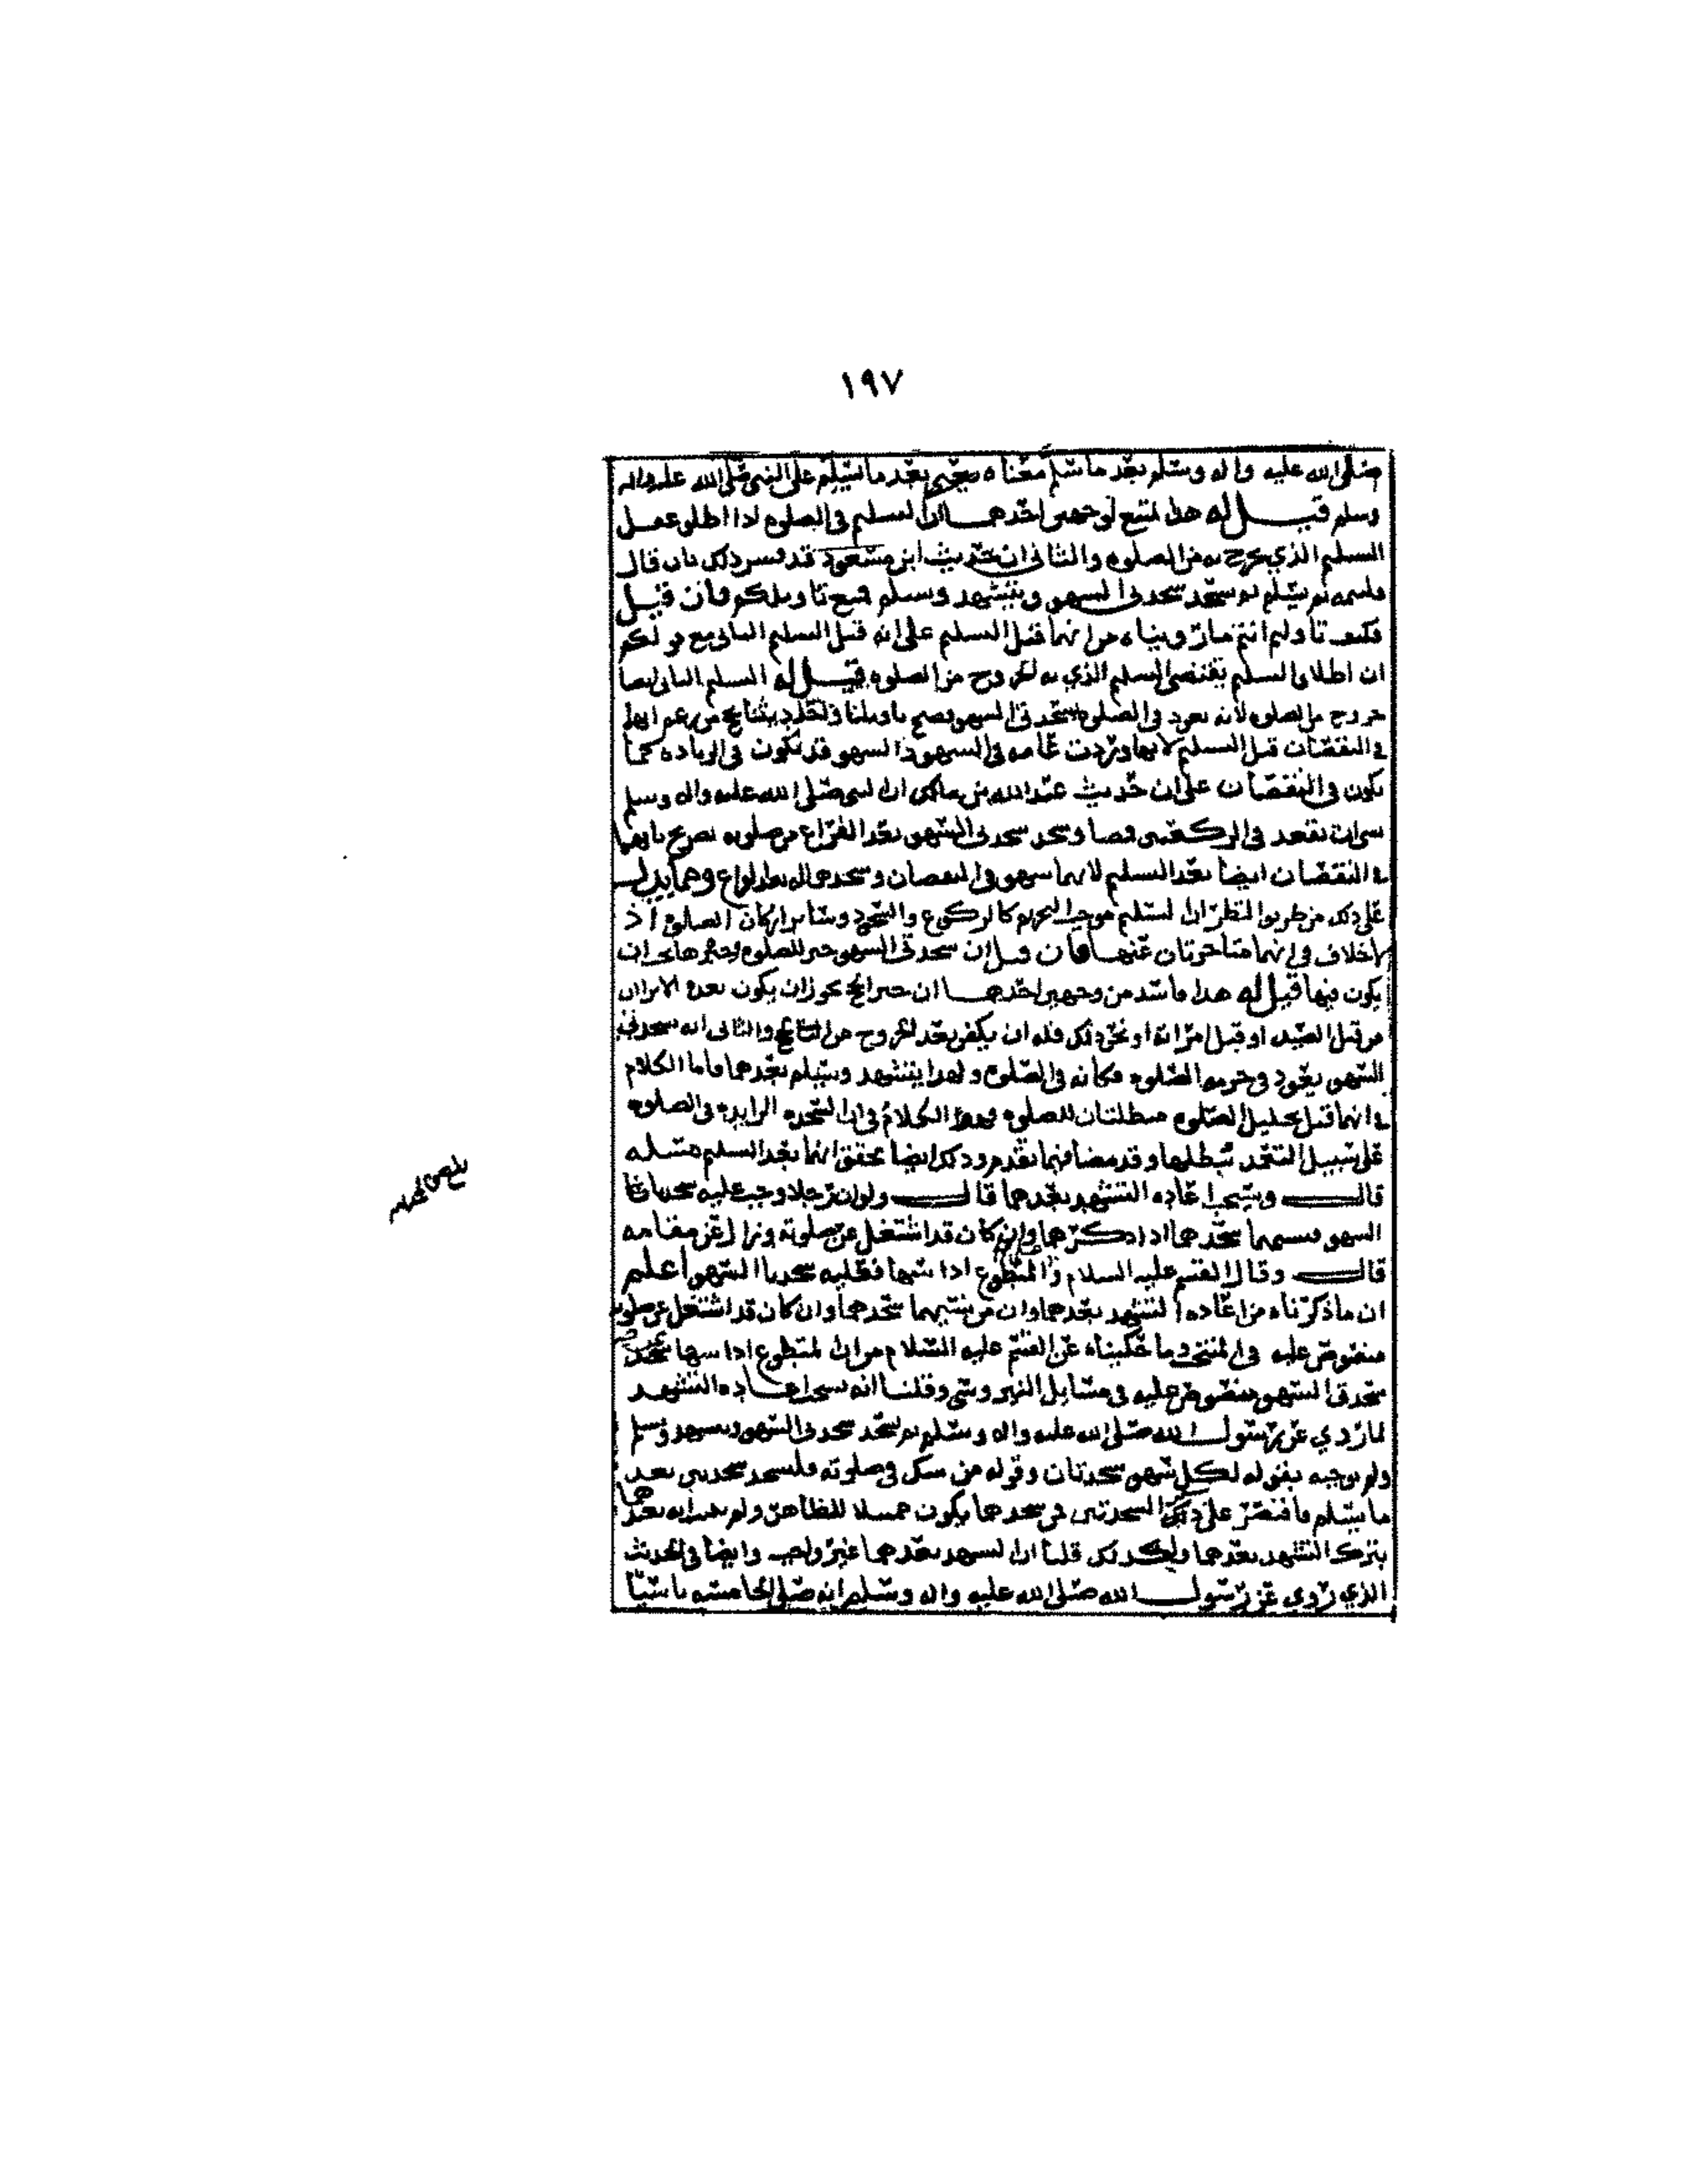 ١٩٧
صلى الله عليه واله وسلم بعد ما سلم معناه يعني بعد ما يسلم على النبي صلى الله عليه واله
وسلم قيل له هذا لوجهين احدهما ان التسليم في الصلوه اذا اطلق عمل
التسليم الذي يخرج به من الصلوه والثاني ان حديث ابن مسعود قد فسر ذلك بان قال
ثم يسلم ثم سجد سجدتي السهو ويتشهد ويسلم تاويلكم فان قيل
فكيف تاولتم انتم ما رويناه من انهما قبل التسليم على انه قبل التسليم الثاني مع قولكم
ان اطلاق التسليم يقتضي التسليم الذي به الخروج من الصلوه قيل له التسليم الثاني ايضا
خروج من الصلوه لانه يعود في الصلوه بسجدتي السهو فصح تاويلنا من زعم انهما
في النقصان قبل التسليم لانها وردت عامه في السهو والسهو قد تكون في الزياده كما
يكون في النقصان على ان حديث عبد الله بن مالك ان النبي صلى الله عليه واله وسلم
نسي ان يقعد في الركعتين فمضى وسجد سجدتي السهو بعد الفراغ من صلوته تصريح بانهما
في النقصان ايضا بعد التسليم لانهما سهو في النقصان وسجدهما له بعد الفراغ ومما يدل
على ذلك من طريق النظر ان التسليم موجب التحريم كالركوع والسجود وسائر اركان الصلوه اذ
لا خلاف في انهما متاخرتان عنها فان قيل ان سجدتي السهو جبر للصلوه وجبرها يجب ان
يكون فيها قيل له هذا فاسد من وجهين احدهما ان جبر الحج يجوز ان يكون بعده الا ترى ان
من قتل الصيد او قبل امراته او نحو ذلك فله ان يكفر بعد الخروج من الحج والثاني انه بسجدتي
السهو يعود في حرمه الصلوه فكانه في الصلوه ولهذا يتشهد ويسلم بعدهما فاما الكلام
في انهما قبل تحليل الصلوه مبطلتان للصلوه فهو الكلام في ان السجده الزايده في الصلوه
على سبيل التعمد تبطلها وقد مضى فيما تقدم وذلك ايضا يحقق انهما بعد التسليم مسئله
قال ويستحب اعاده التشهد بعدهما قال ولو ان رجلا وجب عليه سجدتا
السهو فنسيهما سجدهما اذا ذكرهما وان كان قد اشتغل عن صلوته وزال عن مقامه
قال وقال القسم عليه السلام والمتطوع اذا سها فعليه سجدتا السهو اعلم
ان ما ذكرناه من اعاده التشهد بعدهما وان من نسيهما سجدهما وان كان قد اشتغل عن صلوته
منصوص عليه في المنتخب وما حكيناه عن القسم عليه السلام من ان المتطوع اذا سها سجد
سجدتي السهو منصوص عليه في مسايل النيروسي وقلنا انه يستحب اعاده التشهد
لما روي عن رسول الله صلى الله عليه واله وسلم ثم سجد سجدتي السهو وتشهد وسلم
ولم نوجبه بقوله لكل سهو سجدتان وقوله من شك في صلوته فليسجد سجدتين بعد
ما يسلم فاقتصر على ذكر السجدتين فمن سجدهما يكون ممتثلا للظاهر
بترك التشهد بعدهما ولذلك قلنا ان التشهد بعدهما غير واجب وايضا في الحديث
الذي روي عن رسول الله صلى الله عليه واله وسلم انه صلى الخامسه ناسيا